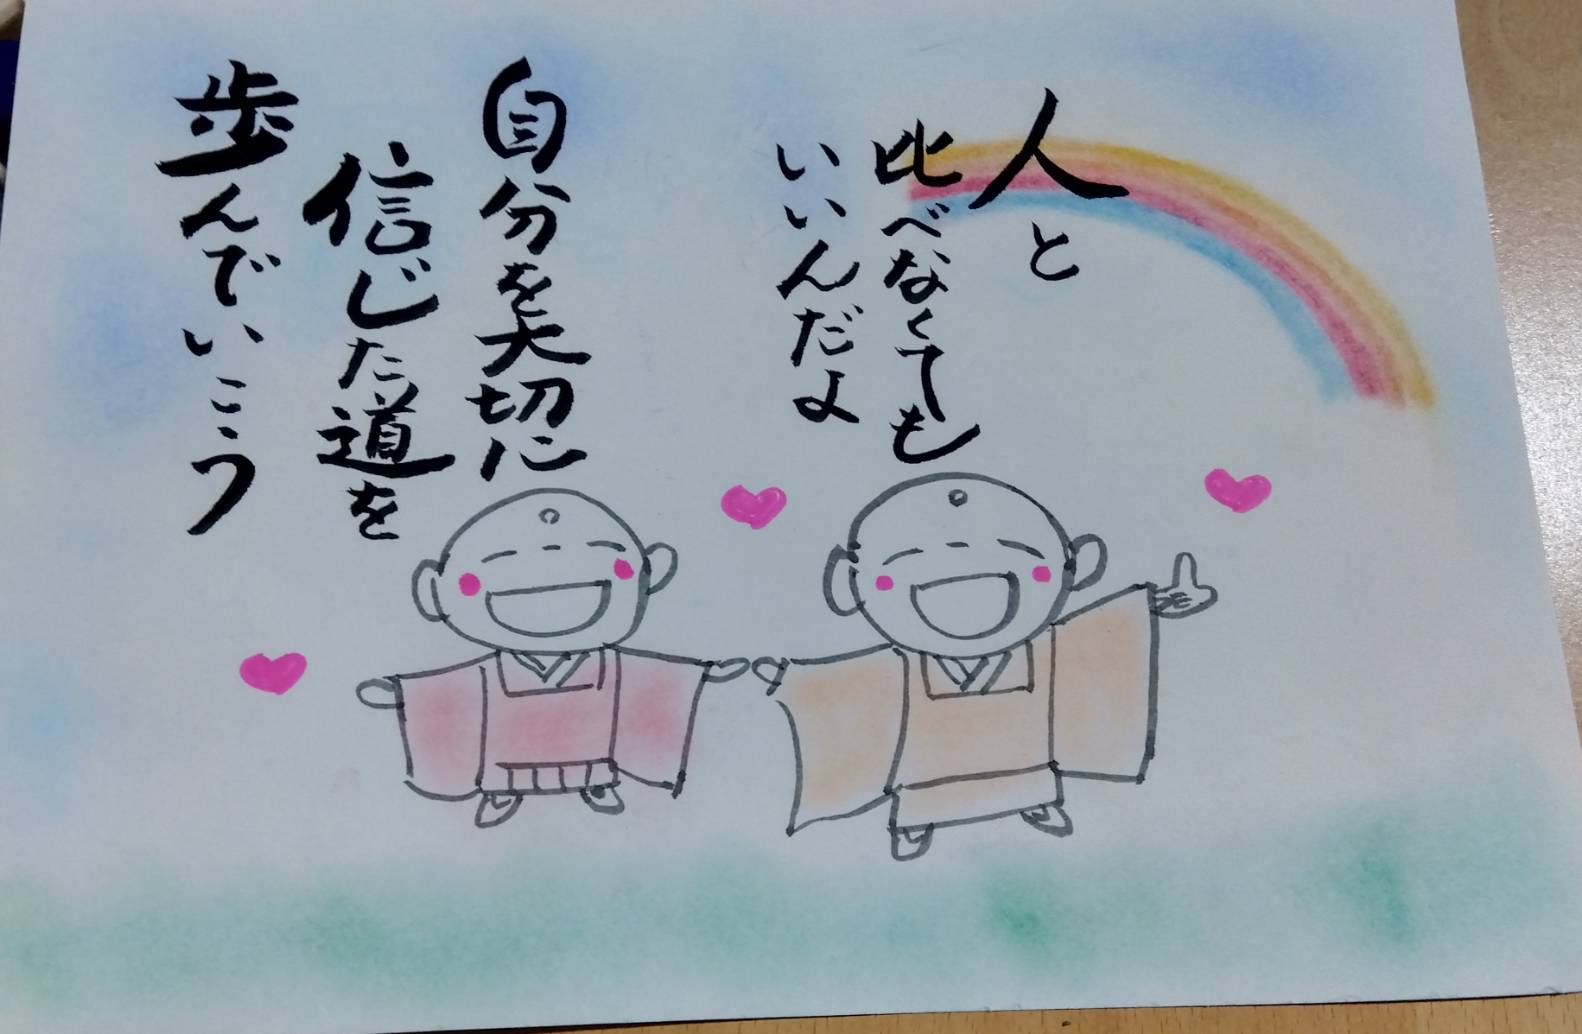 人と
比べなくても
いいんだよ
自分を大切に
信じた道を
歩んでいこう